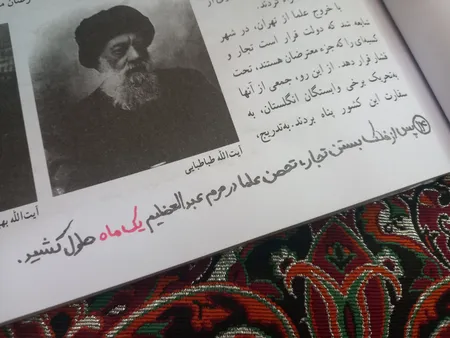 با خروج علما از تهران، در شهر
شایعه شد که دولت قرار است تجار و
کسبه‌ای را که جزء معترضان هستند، تحت
فشار قرار دهد. از این رو، جمعی از آنها
به‌تحریک برخی وابستگان انگلستان، به
سفارت این کشور پناه بردند. به‌تدریج،
آیت‌الله طباطبایی
آیت‌الله
پس از فلک بستن تجار، تحصن علما در حرم عبدالعظیم یک ماه طول کشید.